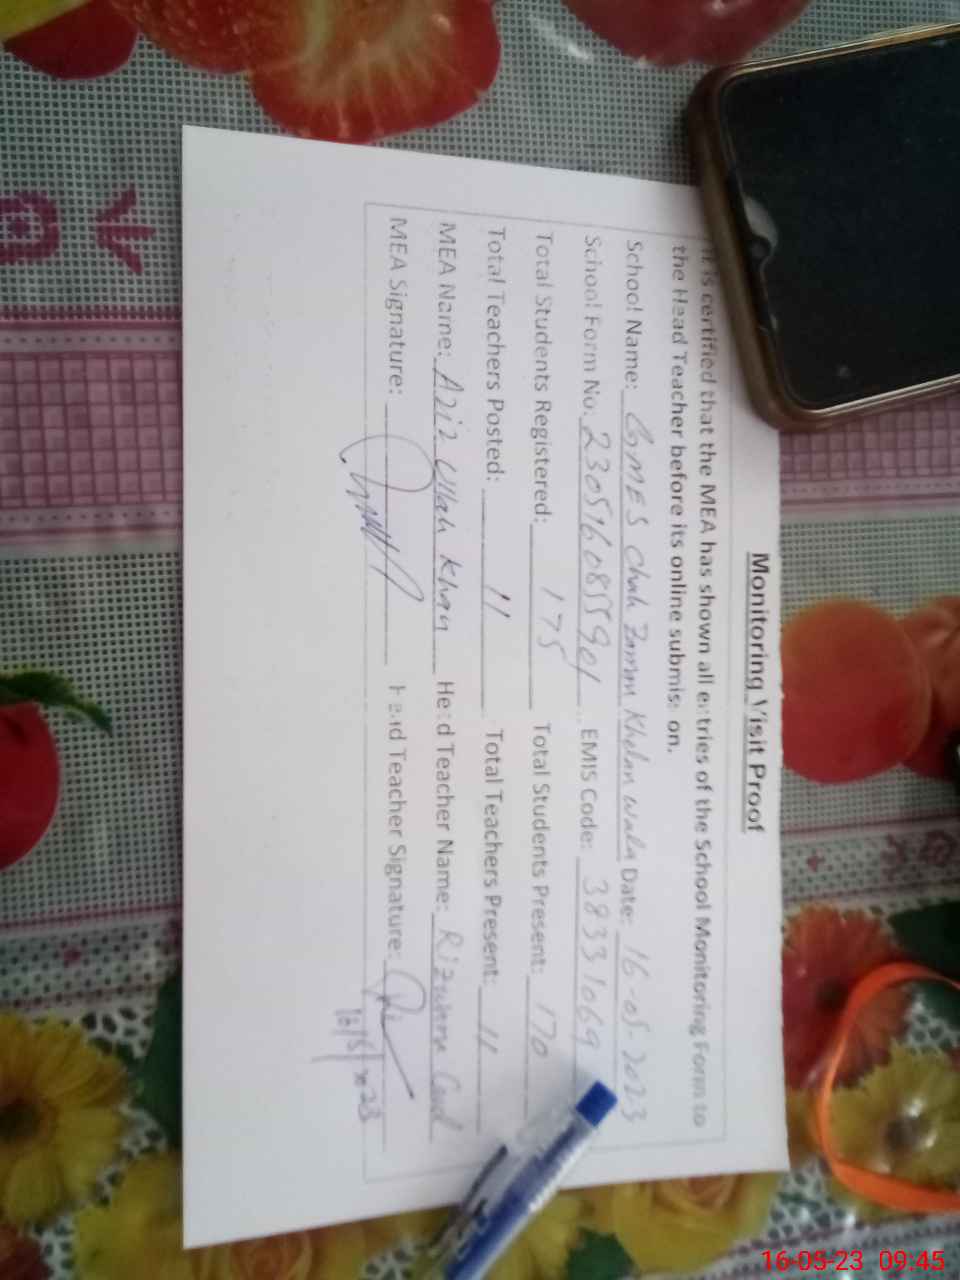 Monitoring Visit Proof
It is certified that the MEA has shown all entries of the School Monitoring Form to
the Head Teacher before its online submission.
School Name: GMES Chah Zaman Khelan wala Date: 16-05-2023
School Form No. EMIS Code: 38331069
Total Students Registered: 175 Total Students Present: 170
Total Teachers Posted: 11 Total Teachers Present: 11
MEA Name: Aziz Ullah Khan Head Teacher Name:
MEA Signature: Head Teacher Signature:
16/5/2023
16-05-23 09:45